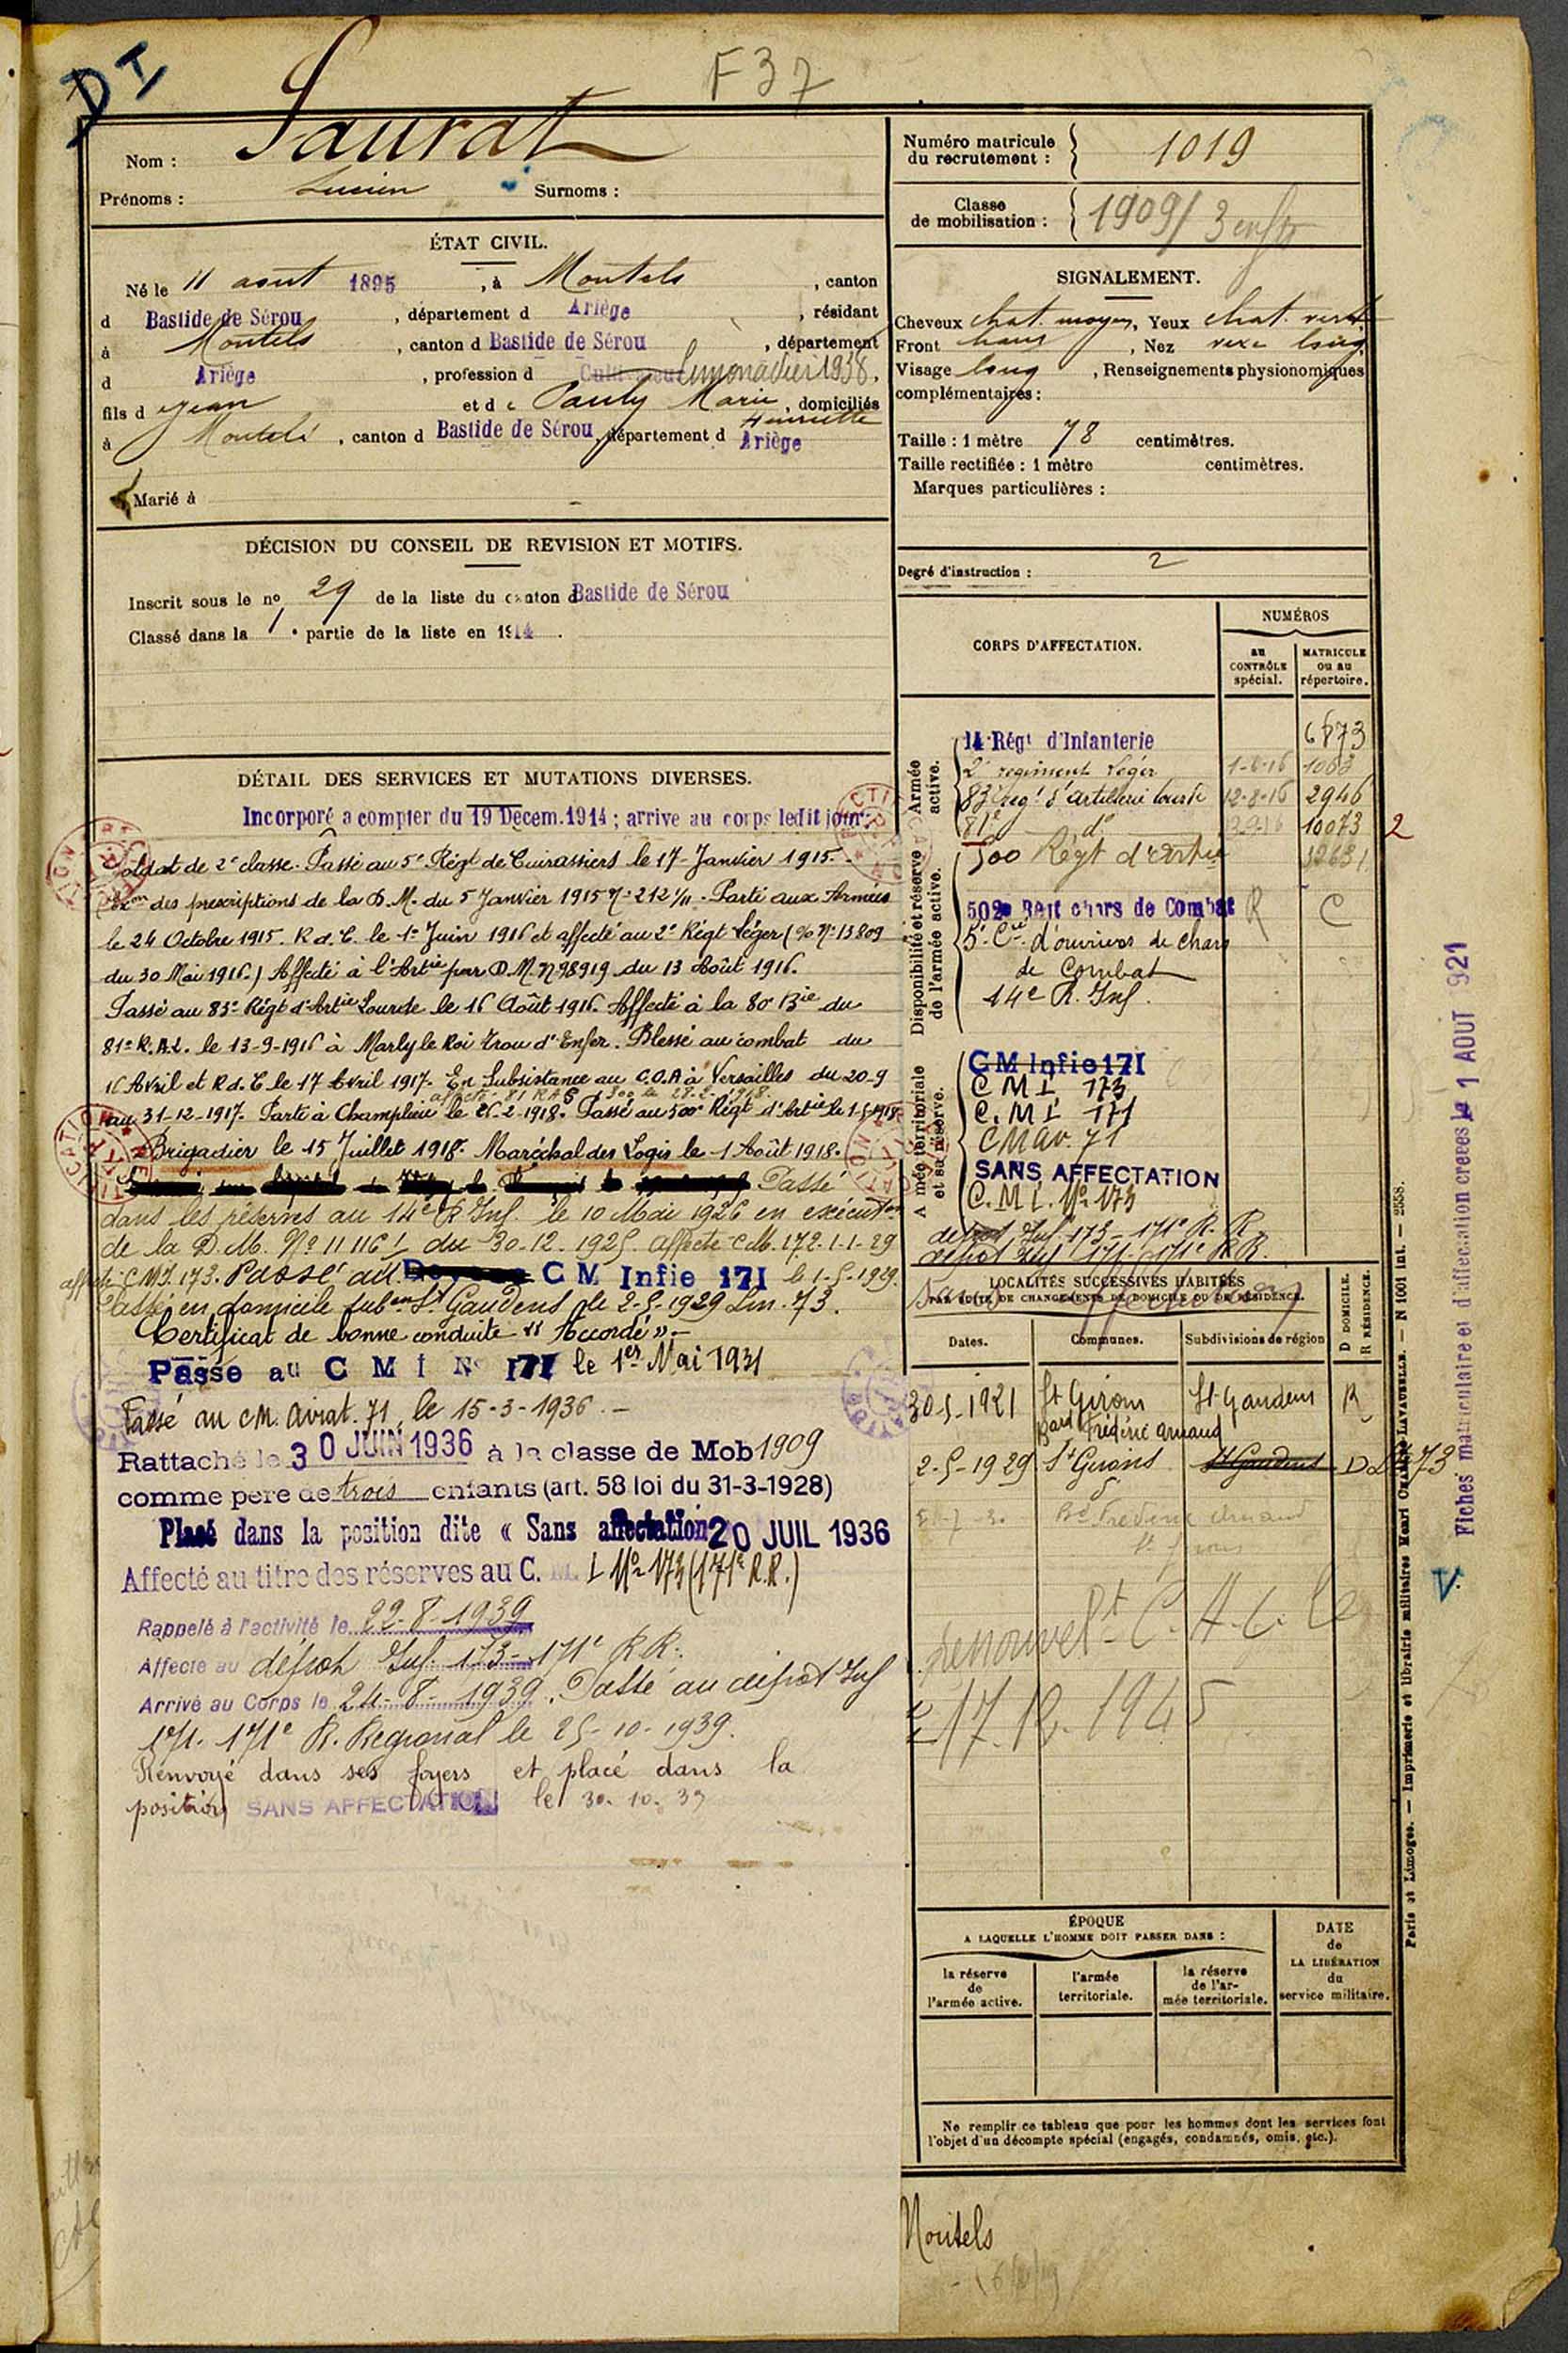 DI
F37
Nom : Saurat
Prénoms : Lucien Surnoms :
ÉTAT CIVIL.
Né le 11 août 1895, à Montels, canton
d Bastide de Sérou, département d Ariège, résidant
à Montels, canton d Bastide de Sérou, département
d Ariège, profession d Limonadier 1938.
fils d e Jean et d e Pauly Marie Henriette, domiciliés
à Montels, canton d Bastide de Sérou, département d Ariège
Marié à
DÉCISION DU CONSEIL DE REVISION ET MOTIFS.
Inscrit sous le no 29 de la liste du canton d Bastide de Sérou
Classé dans la 1e partie de la liste en 1914.
DÉTAIL DES SERVICES ET MUTATIONS DIVERSES.
Incorporé a compter du 19 Decem. 1914 ; arrive au corps ledit jour.
Soldat de 2e classe. Passé au 5e Régt de Cuirassiers le 17 Janvier 1915.
des prescriptions de la D.M. du 5 Janvier 1915 No 212 1/11. Parti aux Armées
le 24 Octobre 1915. R d. C. le 1er Juin 1916 et affecté au 2e Régt Léger (% No 13809
du 30 Mai 1916.) Affecté à l'Artie par D.M. No 98919 du 13 Août 1916.
Passé au 83e Régt d'Artie Lourde le 16 Août 1916. Affecté à la 80 Bie du
81e R.A.L. le 13-9-1916 à Marly le Roi Trou d'Enfer. Blessé au combat du
16 Avril et R d. C le 17 Avril 1917. En Subsistance au C.O.A à Versailles du 20-9
au 31-12-1917. Parti à Champlieu le 26-2-1918. Passé au 500e Régt d'Artie le
Brigadier le 15 Juillet 1918. Maréchal des Logis le 1 Août 1918.
Passé
dans les réserves au 14e R Inf. le 10 Mai 1926 en exécuton
de la D.M. No 11116 du 30.12.1925. affecté C.M. 172.1-1-29
affecté C M I. 173. Passé au C M Infie 171 le 1-5-1929.
Classé en domicile subon St Gaudens le 2-5-1929 Lm. 73.
Certificat de bonne conduite "Accordé".
Passe au C M I No 171 le 1er Mai 1931
Passé au CM. Aviat. 71, le 15-3-1936.
Rattaché le 30 JUIN 1936 à la classe de Mob 1909
comme pere de trois enfants (art. 58 loi du 31-3-1928)
Placé dans la position dite « Sans affectation 20 JUIL 1936
Affecté au titre des réserves au C. M. I No 173 (171e R.R.)
Rappelé à l'activité le 22-8-1939
Affecté au dépôt Inf. 173 - 171e RR.
Arrivé au Corps le 24-8-1939. Passé au dépôt Inf
171. 171e R. Regional le 25-10-1939.
Renvoyé dans ses foyers et placé dans la
position SANS AFFECTATION le 30.10.39
Numéro matricule du recrutement : 1019
Classe de mobilisation : 1909/ 3 enfts
SIGNALEMENT.
Cheveux chat. moyen, Yeux chat. verd.
Front haut, Nez long
Visage long, Renseignements physionomiques
complémentaires :
Taille : 1 mètre 78 centimètres.
Taille rectifiée : 1 mètre centimètres.
Marques particulières :
Degré d'instruction : 2
CORPS D'AFFECTATION.
NUMÉROS
au CONTRÔLE spécial.
MATRICULE ou au répertoire.
Armée active.
14 Régt d'Infanterie 6873
2e regiment Léger 1-6-16 1003
83e regt d'artillerie lourde 12-8-16 2946
81e do 10073 2
Disponibilité et réserve de l'armée active.
500 Régt d'Artie
502e Régt chars de Combat R C
5e Cie d'ouvriers de chars
de Combat
14e R. Inf.
Armée territoriale et sa réserve.
CM Infie 171
C M I 173
C. M I 171
CM av. 71
SANS AFFECTATION
C. M I. No 173
depot Inf. 173 - 171e R. R
depot Inf 171 - 171e R R.
Sans affectation
LOCALITÉS SUCCESSIVES HABITÉES
PAR SUITE DE CHANGEMENTS DE DOMICILE OU DE RÉSIDENCE.
Dates. Communes. Subdivisions de région D DOMICILE. R RÉSIDENCE.
30-5-1921 St Girons St Gaudens R
Bard Frédéric Arnaud
2-5-1929 St Girons St Gaudens D Lm 73
Bd Frédéric Arnaud
St Girons
renouvelt C. A. C. le
17.12.1945
ÉPOQUE
A LAQUELLE L'HOMME DOIT PASSER DANS :
la réserve de l'armée active.
l'armée territoriale.
la réserve de l'armée territoriale.
DATE de LA LIBÉRATION du service militaire.
Ne remplir ce tableau que pour les hommes dont les services font
l'objet d'un décompte spécial (engagés, condamnés, omis, etc.).
Montels
Paris et Limoges. — Imprimerie et librairie militaires Henri CHARLES-LAVAUZELLE. — N 1001 Int. — 2558.
Fiches matriculaire et d'affectation creees le 1 AOUT 921
V.